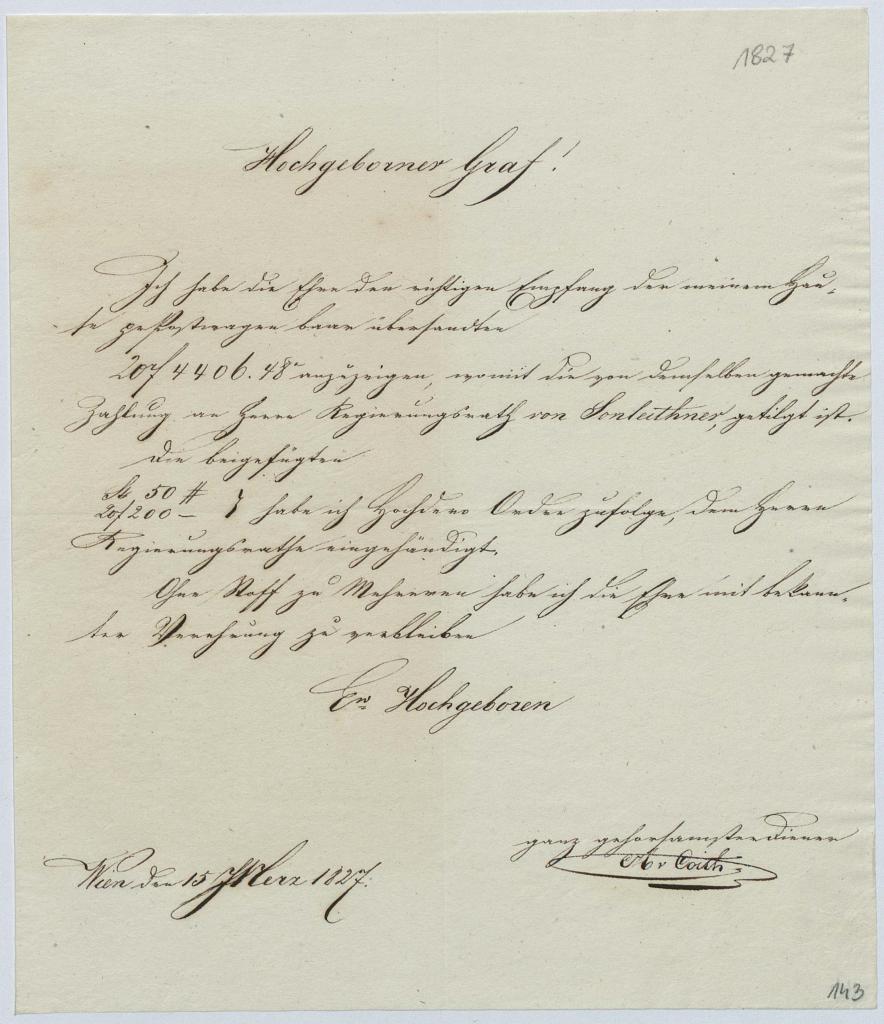 1827
Hochgeborner Graf!
Ich habe die Ehre den richtigen Empfang der meinem Hau-
se pr Postwagen baar übersandten
20f 4406. 48 anzuzeigen, womit die von demselben gemachte
Zahlung an Herrn Regierungsrath von Sonleithner, getilgt ist.
Die beigefügten
St 50 #
20f 200 – } habe ich Hochdero Order zufolge, dem Herrn
Regierungsrathe eingehändigt.
Ohne Stoff zu Mehreren habe ich die Ehre mit bekann-
ter Verehrung zu verbleiben
Ew Hochgeboren
ganz gehorsamster Diener
Wien den 15 Merz 1827.
v Coith
143